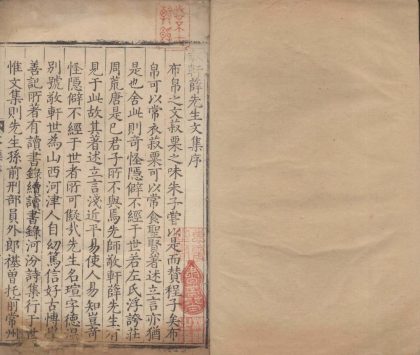 軒薛先生文集序
布帛之文菽粟之味朱子嘗以是而賛程子矣布
帛可以常衣菽粟可以常食聖賢著述立言亦猶
是也舍此則奇怪隱僻不經于世若左氏浮誇莊
周荒唐是已君子所不與焉先師敬軒薛先生有
見于此故其著述立言淺近平易使人易知豈奇
怪隱僻不經于世者所可儗哉先生名瑄字德溫
別號敬軒世為山西河津人自幼篤信好古博學
善記所著有讀書錄續讀書錄河汾詩集行于世
惟文集則先生孫前刑部員外郎禥曽托常州